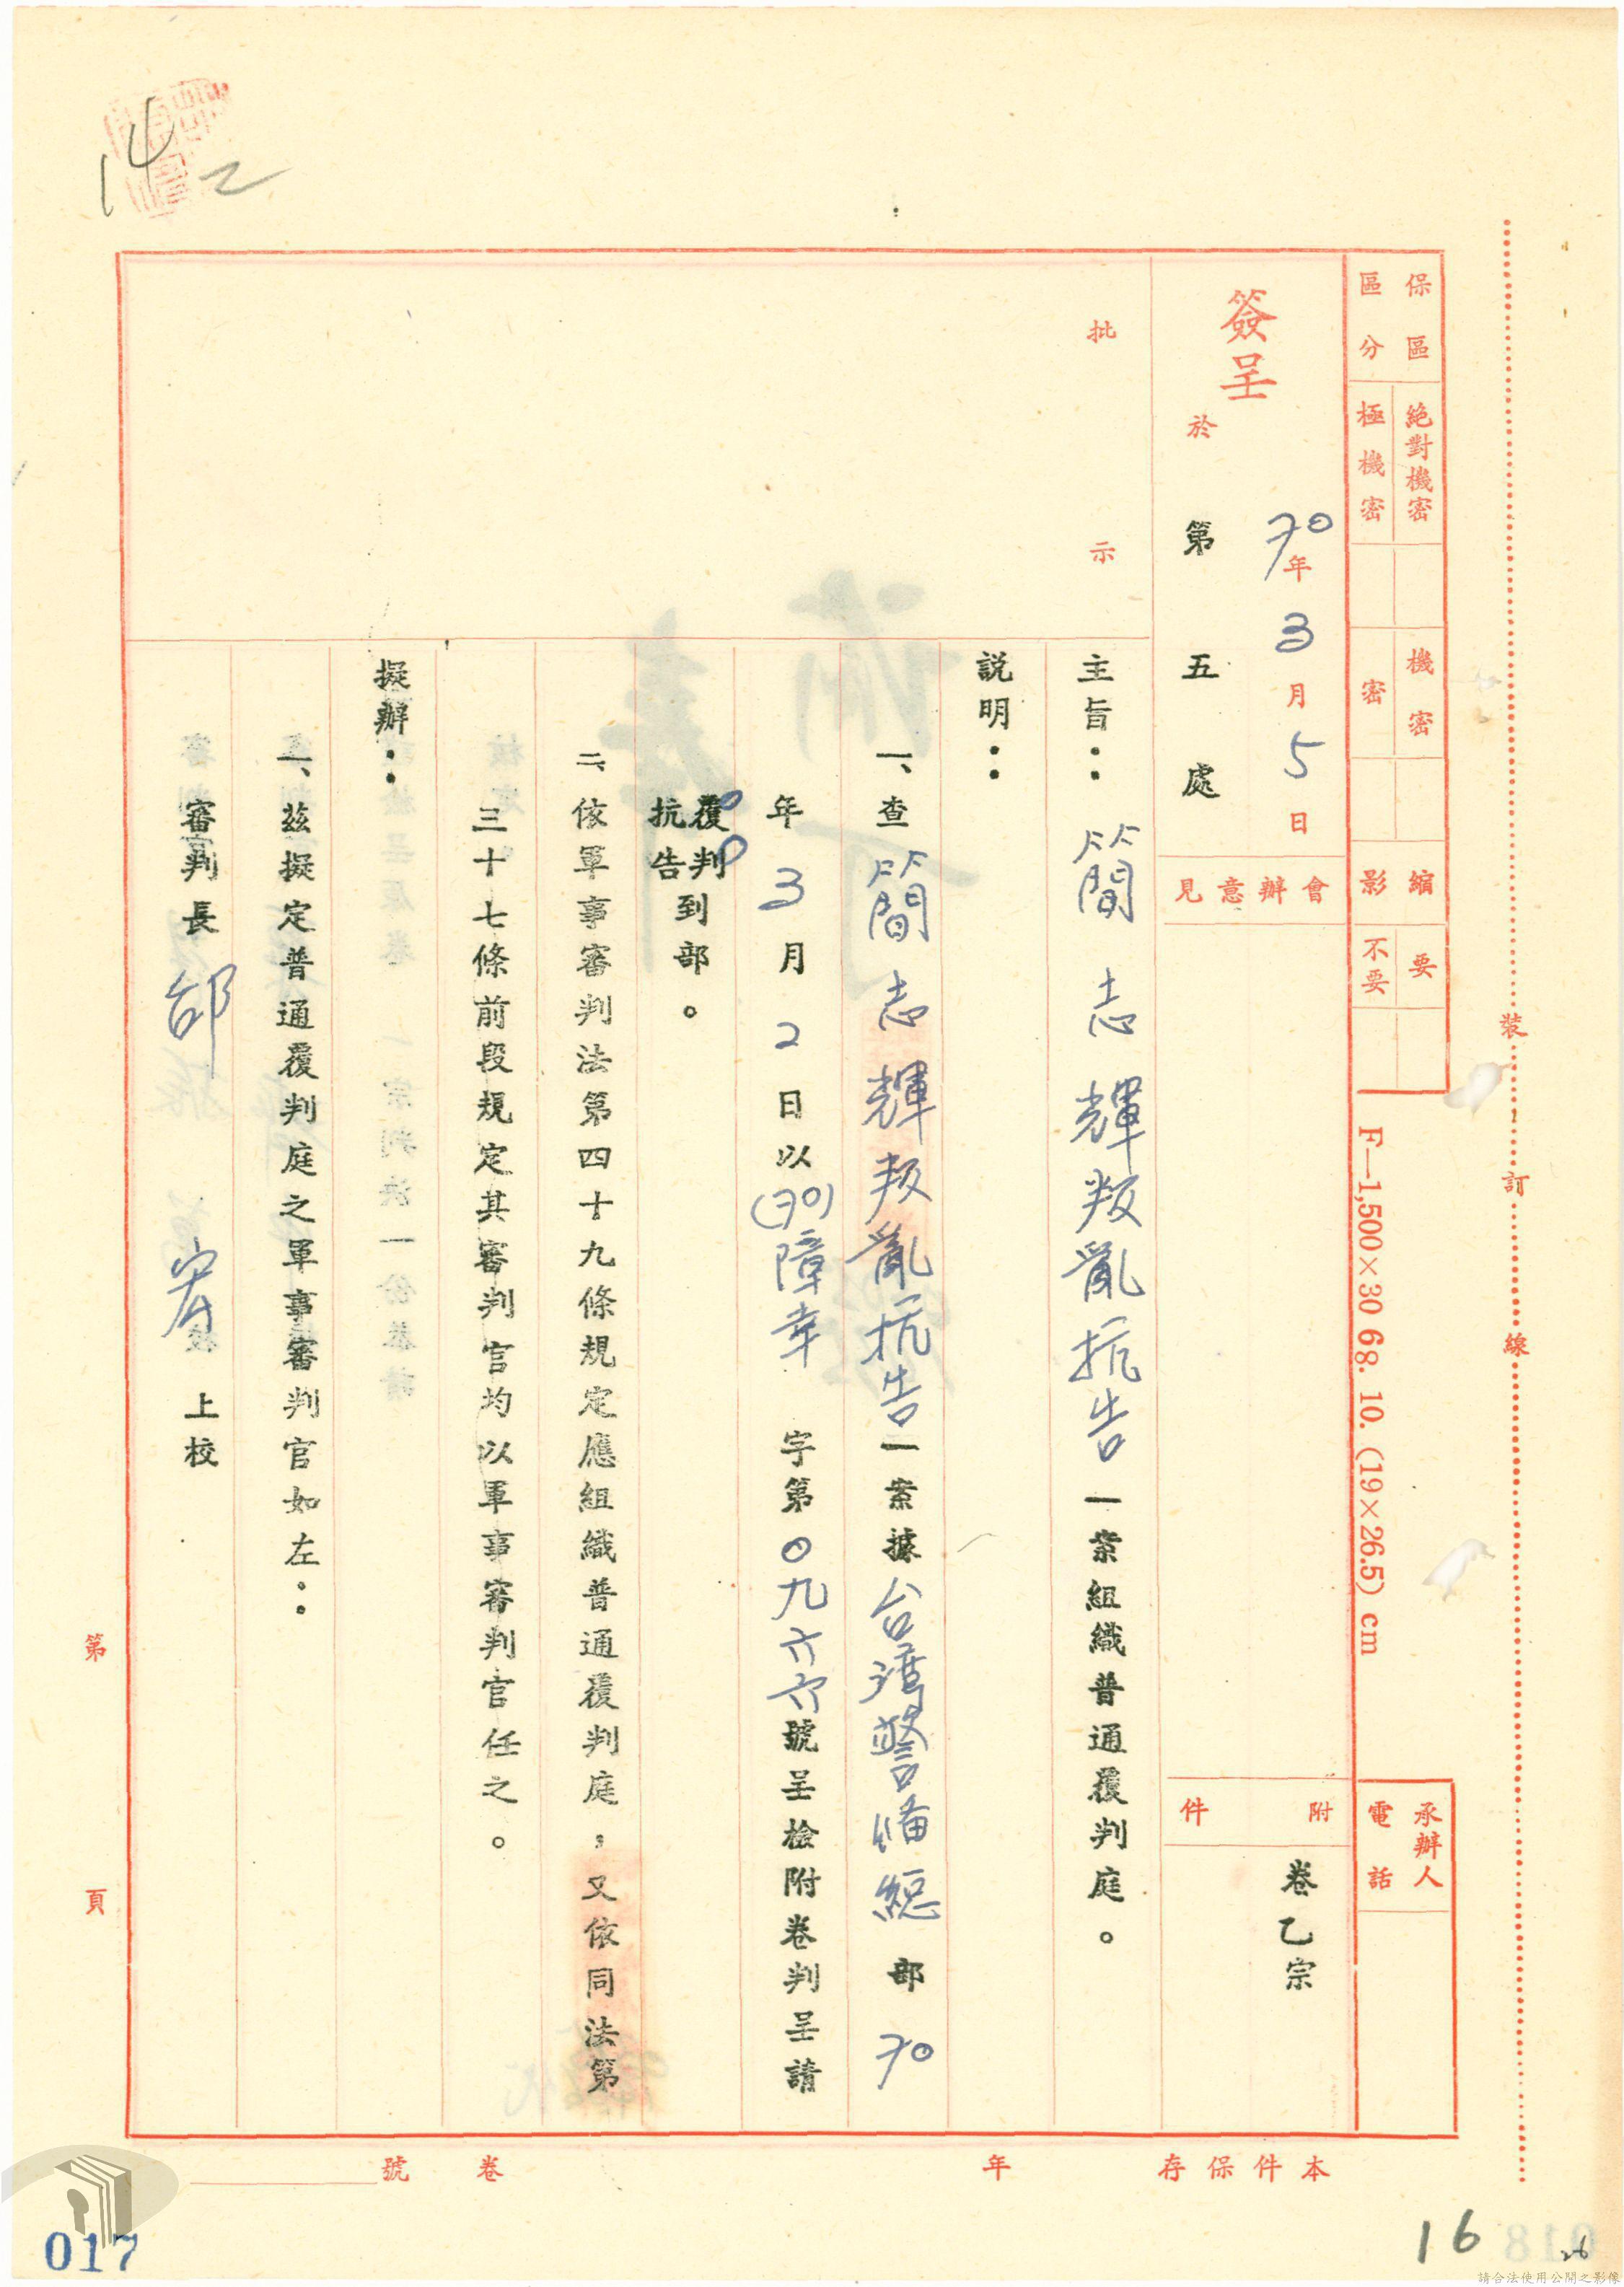 14
2
裝 訂 線
保區區分
絕對機密
極機密
機密
密
縮影
要
不要
F—1,500×30 68. 10. (19×26.5) cm
承辦人
電話
簽呈
於
70年3月5日
第五處
會辦意見
附件
卷乙宗
批示
主旨：簡志輝叛亂抗告一案組織普通覆判庭。
說明：
一、查簡志輝叛亂抗告一案據台灣警備總部70
年3月2日以(70)障幸字第0九六六號呈檢附卷判呈請
覆判
抗告到部。
二、依軍事審判法第四十九條規定應組織普通覆判庭，又依同法第
三十七條前段規定其審判官均以軍事審判官任之。
擬辦：
一、茲擬定普通覆判庭之軍事審判官如左：
審判長 邰 上校
第 頁
本件保存 年
卷 號
017
16
018
26
請合法使用公開之影像